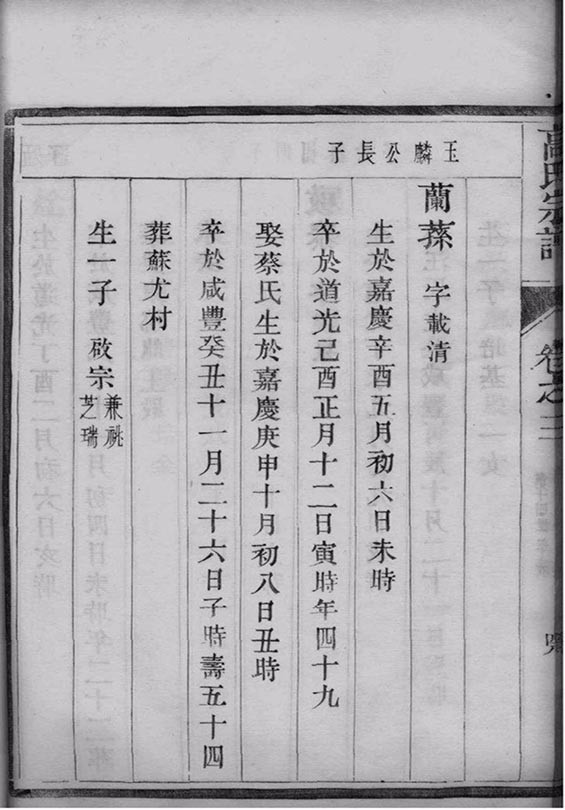 高氏宗譜
卷之三
玉麟公長子
蘭蓀 字載清
生於嘉慶辛酉五月初六日未時
卒於道光己酉正月十二日寅時年四十九
娶蔡氏生於嘉慶庚申十月初八日丑時
卒於咸豐癸丑十一月二十六日子時壽五十四
葬蘇尤村
生一子 啟宗兼祧芝瑞